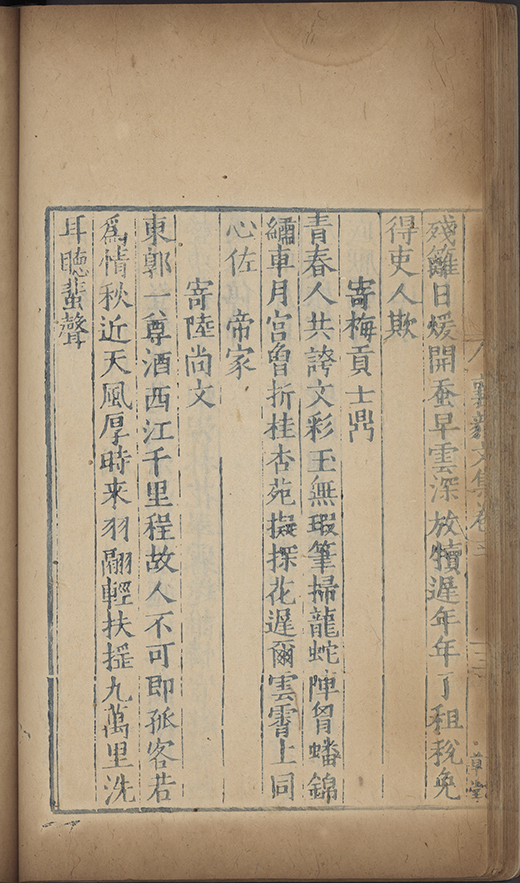 殘籬日煖開蚕早雲深放犢遲年年了租稅免
得吏人欺
寄梅貢士鼎
青春人共誇文彩玉無瑕筆掃龍蛇陣胷蟠錦
繡車月宮曾折桂杏苑擬探花遲爾雲霄上同
心佐帝家
寄陸尚文
東郭一尊酒西江千里程故人不可即孤客若
爲情秋近天風厚時来羽翮輕扶摇九萬里洗
耳聽蜚聲